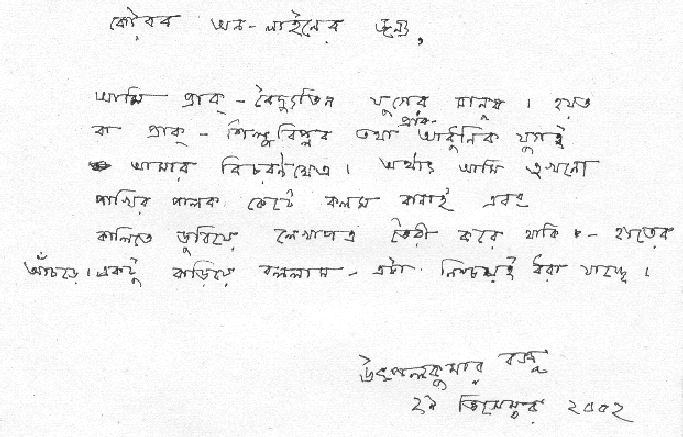 কৌরব অন-লাইনের জন্য,
আমি প্রাক্-বৈদ্যুতিন যুগের মানুষ। হয়ত
বা প্রাক্-শিল্পবিপ্লব তথা প্রাক্-আধুনিক যুগই
আমার বিচরণক্ষেত্র। অর্থাৎ আমি এখনো
পাখির পালক কেটে কলম বানাই এবং
কালিতে ডুবিয়ে লেখাপত্র তৈরী করে থাকি - হাতের
আঁচড়ে। একটু বাড়িয়ে বললাম - এটা নিশ্চয়ই ধরা যাচ্ছে।
উৎপলকুমার বসু
২৯ ডিসেম্বর ২০০২